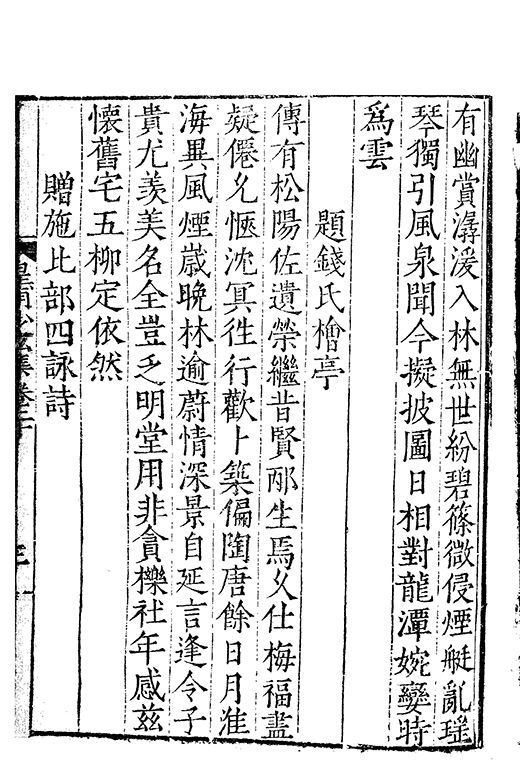 有幽賞潺湲入林無世紛碧篠微侵煙艇亂瑤
琴獨引風泉聞今擬披圖日相對龍潭婉孌時
爲雲
題錢氏檜亭
傳有松陽佐遺榮繼昔賢邴生焉乆仕梅福盡
疑僊允愜沈冥徃行歡卜築偏陶唐餘日月淮
海異風煙嵗晚林逾蔚情深景自延言逢令子
貴尤羡美名全豈乏明堂用非貪櫟社年感茲
懷舊宅五柳定依然
贈施比部四詠詩